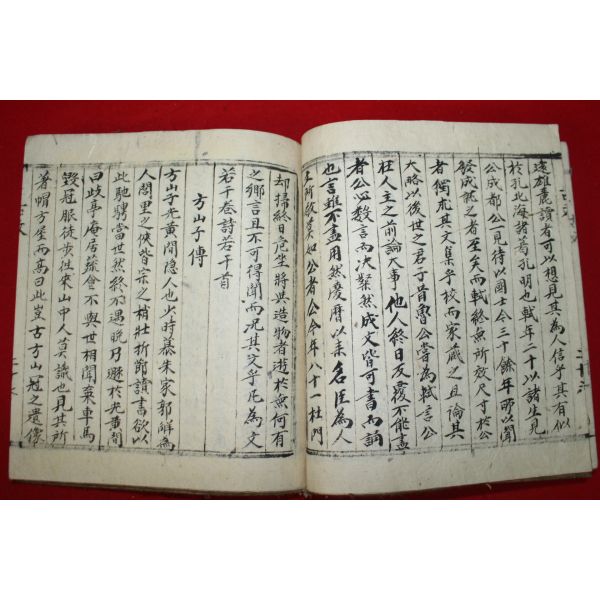 遠雄麗讀者可以想見其為人信乎其有似
於孔北海諸葛孔明也軾年二十以諸生見
公成都公見待以國士今三十餘年所以聞
發成就之者至矣而軾終無所效尺寸於公
者獨求其文集手校而家藏之且論其
大略以後世之君子昔魯公嘗為軾言公
在人主之前論大事他人終日反覆不能盡
者公必數言而決粲然成文皆可書而誦
也言雖不盡用然慶曆以来名臣為人
主所敬莫如公者公今年八十一杜門
却掃終日危坐將與造物者遊於無何有
之鄉言且不可得聞而況其文乎凡為文
若干卷詩若干首
方山子傳
方山子光黄間隱人也少時慕朱家郭解為
人閭里之俠皆宗之稍壯折節讀書欲以
此馳騁當世然終不遇晚乃遯於光黄間
曰歧亭庵居蔬食不與世相聞棄車馬
毀冠服徒步往來山中人莫識也見其所
著帽方屋而高曰此豈古方山冠之遺像